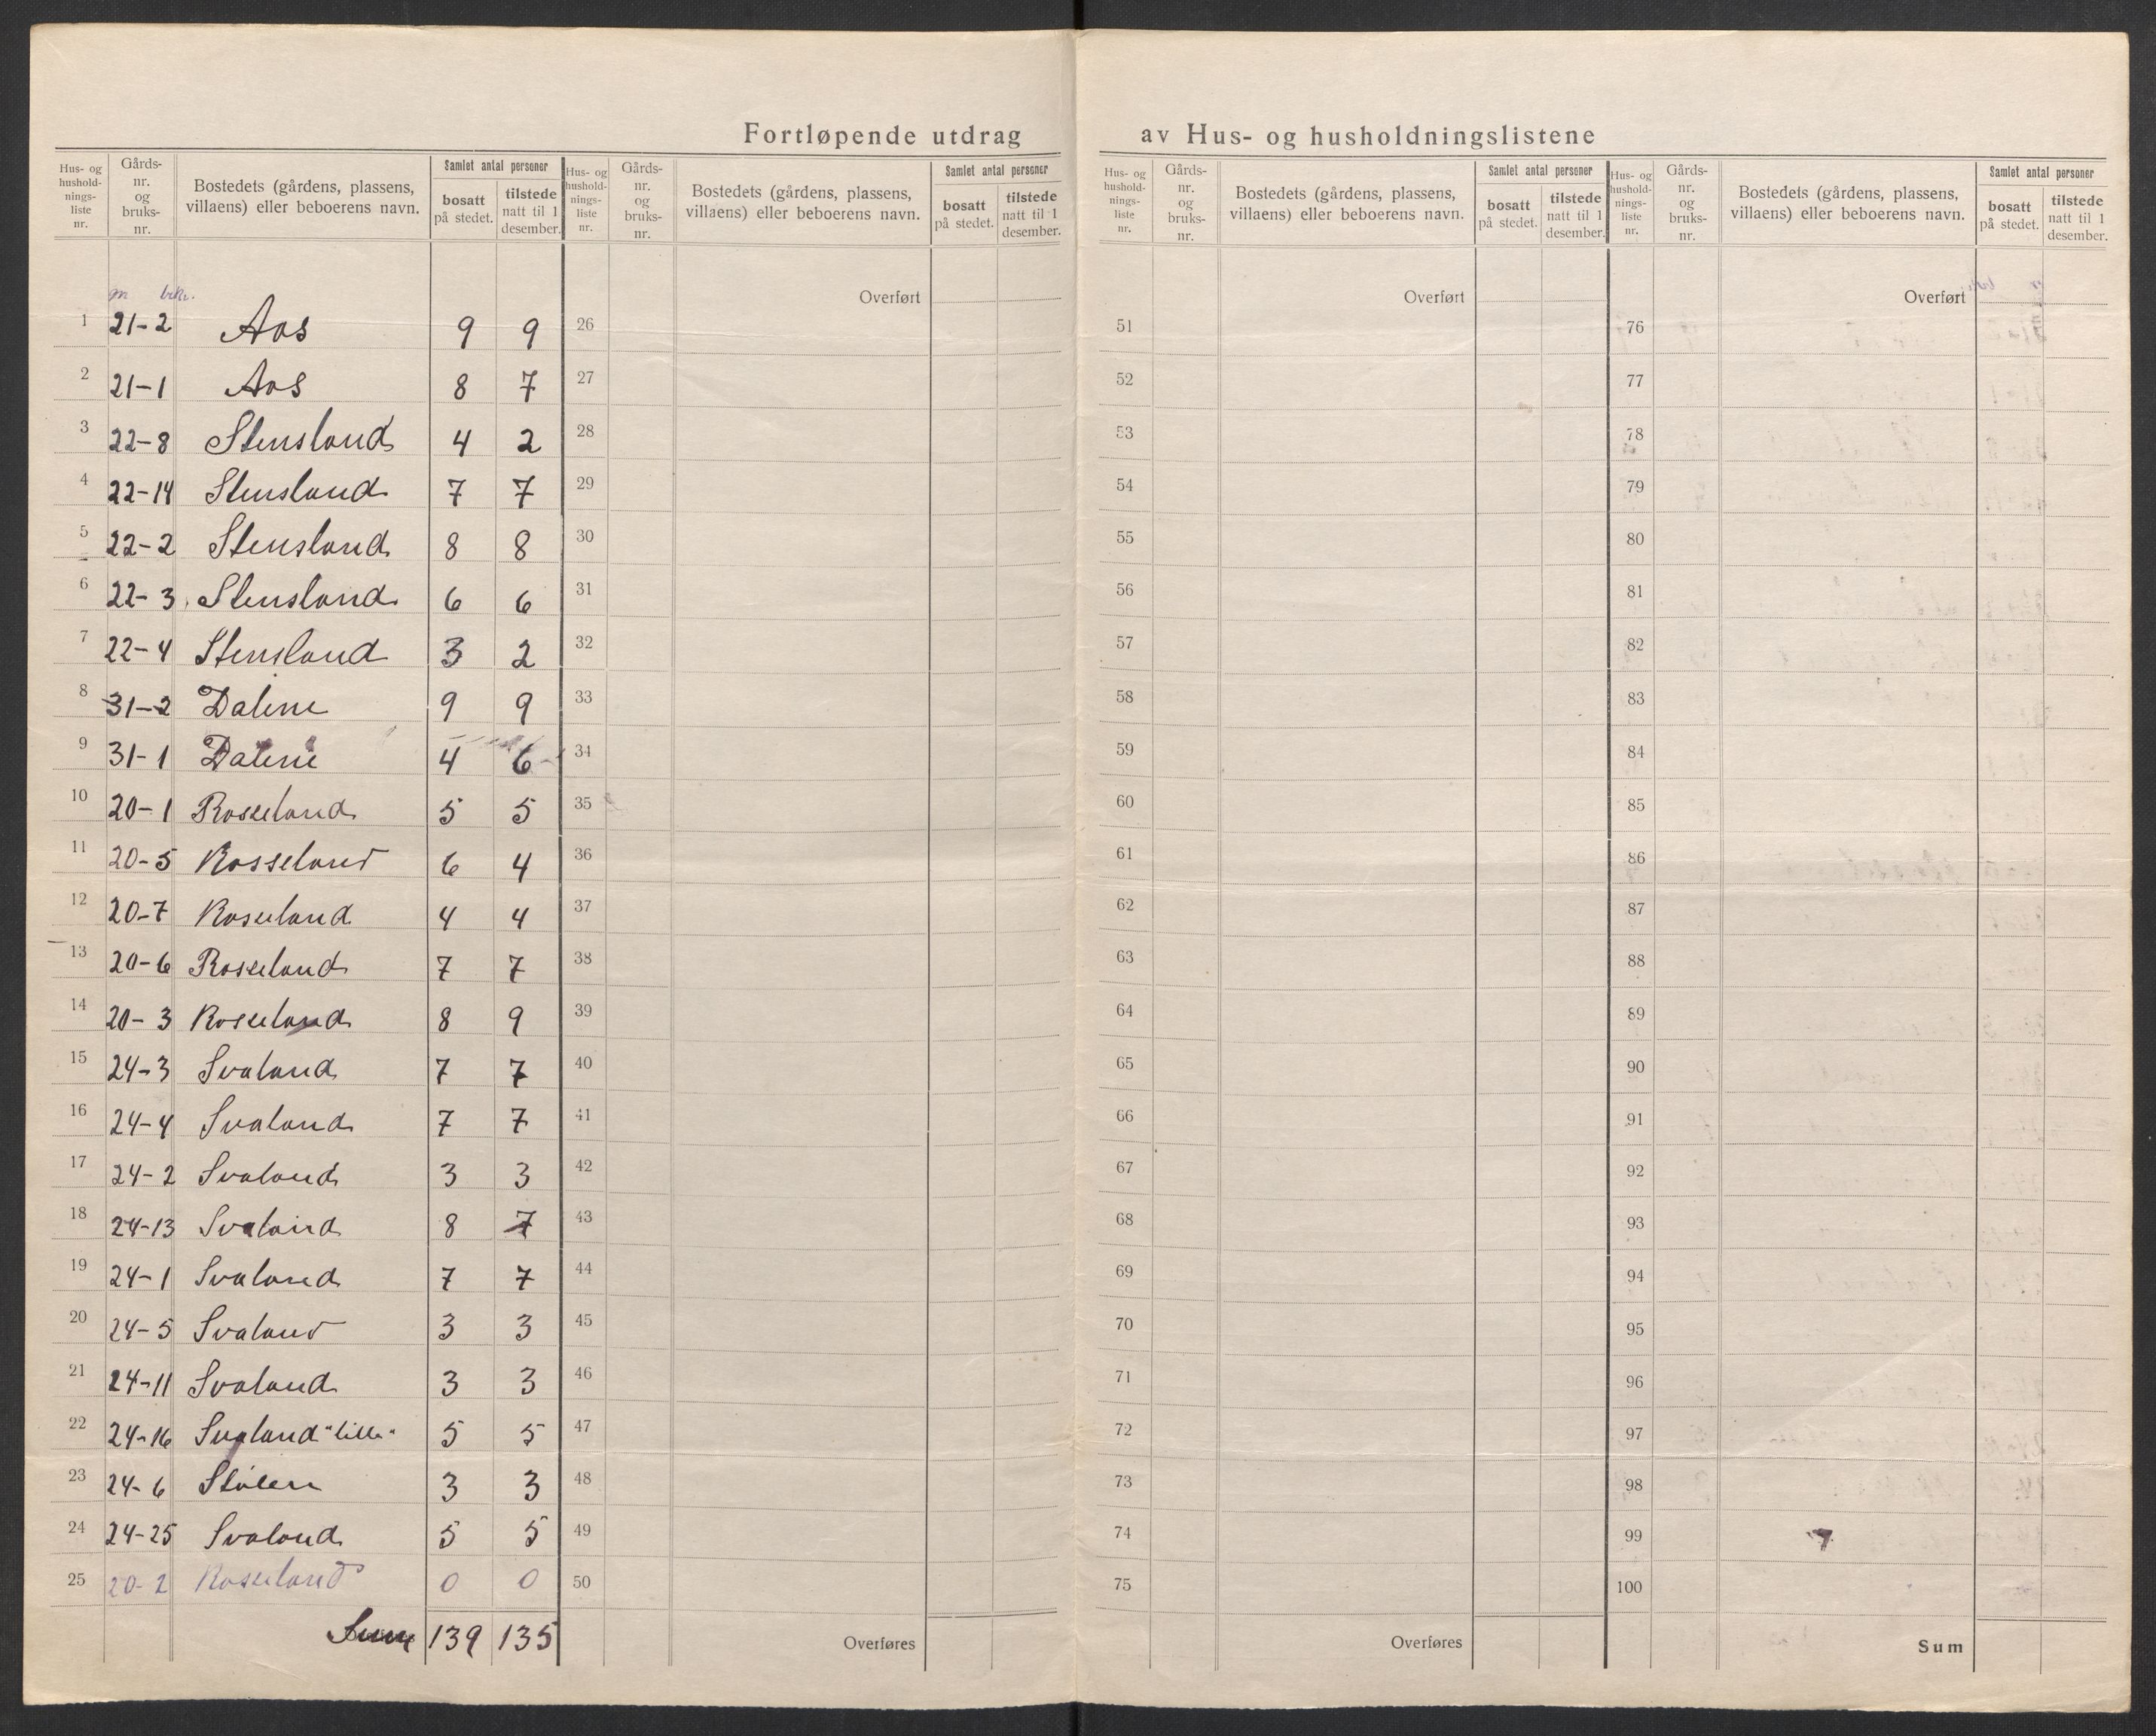 Fortløpende utdrag av Hus- og husholdningslistene
Hus- og hushold-nings-liste nr. Gårds-nr. og bruks-nr. Bostedets (gårdens, plassens, villaens) eller beboerens navn. Samlet antal personer bosatt på stedet. tilstede natt til 1 desember.
Hus- og hushold-nings-liste nr. Gårds-nr. og bruks-nr. Bostedets (gårdens, plassens, villaens) eller beboerens navn. Samlet antal personer bosatt på stedet. tilstede natt til 1 desember.
Hus- og hushold-nings-liste nr. Gårds-nr. og bruks-nr. Bostedets (gårdens, plassens, villaens) eller beboerens navn. Samlet antal personer bosatt på stedet. tilstede natt til 1 desember.
Hus- og hushold-nings-liste nr. Gårds-nr. og bruks-nr. Bostedets (gårdens, plassens, villaens) eller beboerens navn. Samlet antal personer bosatt på stedet. tilstede natt til 1 desember.
1 21-2 Aas 9 9
2 21-1 Aas 8 7
3 22-8 Stensland 4 2
4 22-14 Stensland 7 7
5 22-2 Stensland 8 8
6 22-3 Stensland 6 6
7 22-4 Stensland 3 2
8 31-2 Dalene 9 9
9 31-1 Dalene 4 6
10 20-1 Rosseland 5 5
11 20-5 Rosseland 6 4
12 20-7 Rosseland 4 4
13 20-6 Rosseland 7 7
14 20-3 Rosseland 8 9
15 24-3 Svaland 7 7
16 24-4 Svaland 7 7
17 24-2 Svaland 3 3
18 24-13 Svaland 8 7
19 24-1 Svaland 7 7
20 24-5 Svaland 3 3
21 24-11 Svaland 3 3
22 24-16 Svaland "lille" 5 5
23 24-6 Stølen 3 3
24 24-25 Svaland 5 5
25 20-2 Rosseland 0 0
Sum 139 135
Overført
26
27
28
29
30
31
32
33
34
35
36
37
38
39
40
41
42
43
44
45
46
47
48
49
50
Overføres
Overført
51
52
53
54
55
56
57
58
59
60
61
62
63
64
65
66
67
68
69
70
71
72
73
74
75
Overføres
Overført
76
77
78
79
80
81
82
83
84
85
86
87
88
89
90
91
92
93
94
95
96
97
98
99
100
Sum